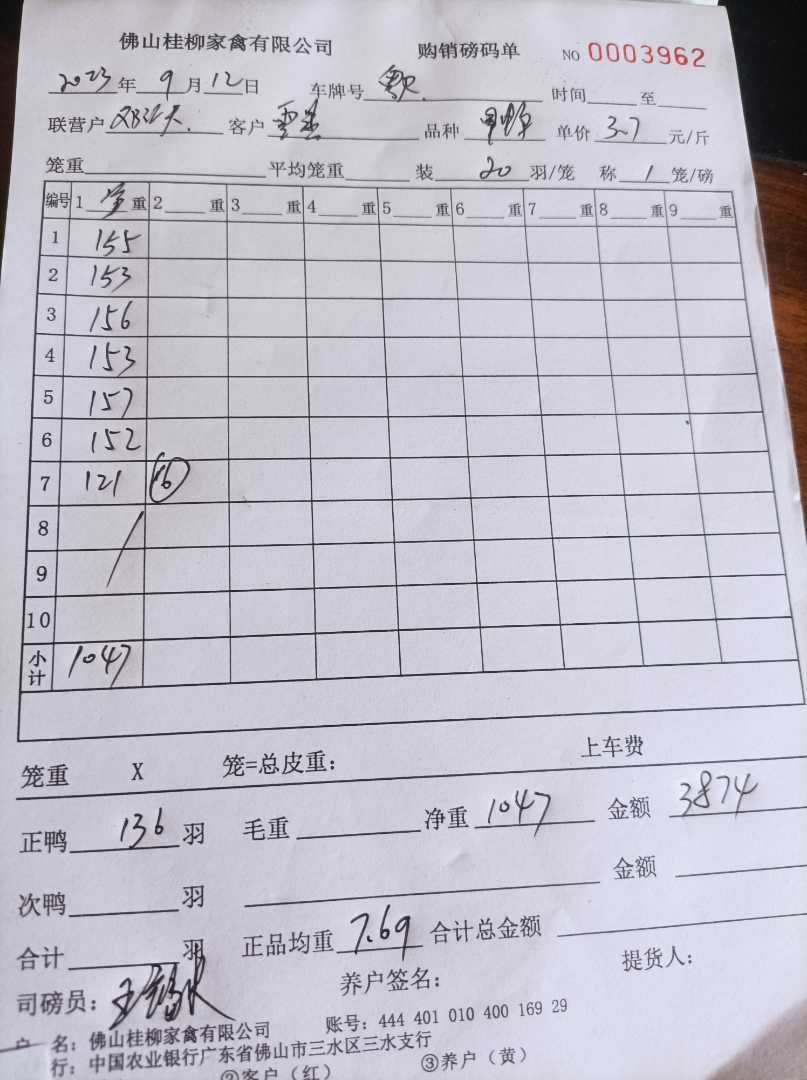 佛山桂柳家禽有限公司 购销磅码单 NO 0003962
2023年9月12日 车牌号 时间 至
联营户 客户 品种 单价 3.7 元/斤
笼重 平均笼重 装 20 羽/笼 称 1 笼/磅
编号 1 重 2 重 3 重 4 重 5 重 6 重 7 重 8 重 9 重
1 155
2 153
3 156
4 153
5 157
6 152
7 121 16
8
9
10
小计 1047
笼重 X 笼=总皮重: 上车费
正鸭 136 羽 毛重 净重 1047 金额 3874
次鸭 羽 金额
合计 羽 正品均重 7.69 合计总金额
司磅员: 养户签名: 提货人:
户 名: 佛山桂柳家禽有限公司 账号: 444 401 010 400 169 29
行: 中国农业银行广东省佛山市三水区三水支行
②客户(红) ③养户(黄)